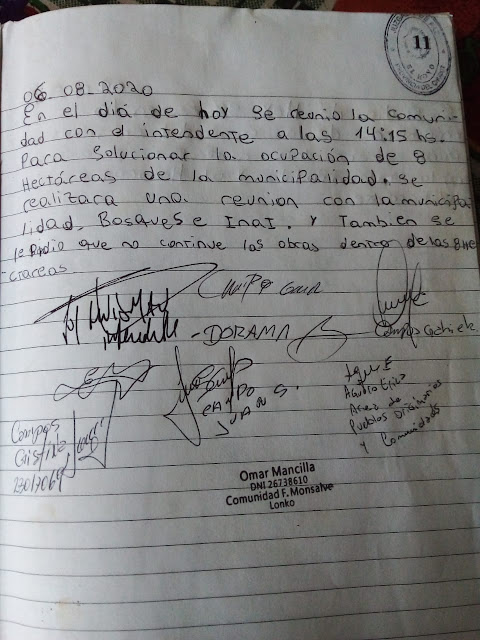 11
06-08-2020
En el diá de hoy se reunio la comuni-
dad con el intendente a las 14:15 hs.
Para solucionar la ocupación de 8
Hectáreas de la municipalidad. se
realizara una reunion con la municipa
lidad, Bosques e Inai. y Tambien se
le Pidio que no continue las obras dentro de las 8 He
ctareas
Intendente
-DORAMA
Campos
CAMPO
JUAN S.
Campos
Cristi
Area de
Pueblos Originarios
y Comunidades
Omar Mancilla
DNI 26738610
Comunidad F. Monsalve
Lonko